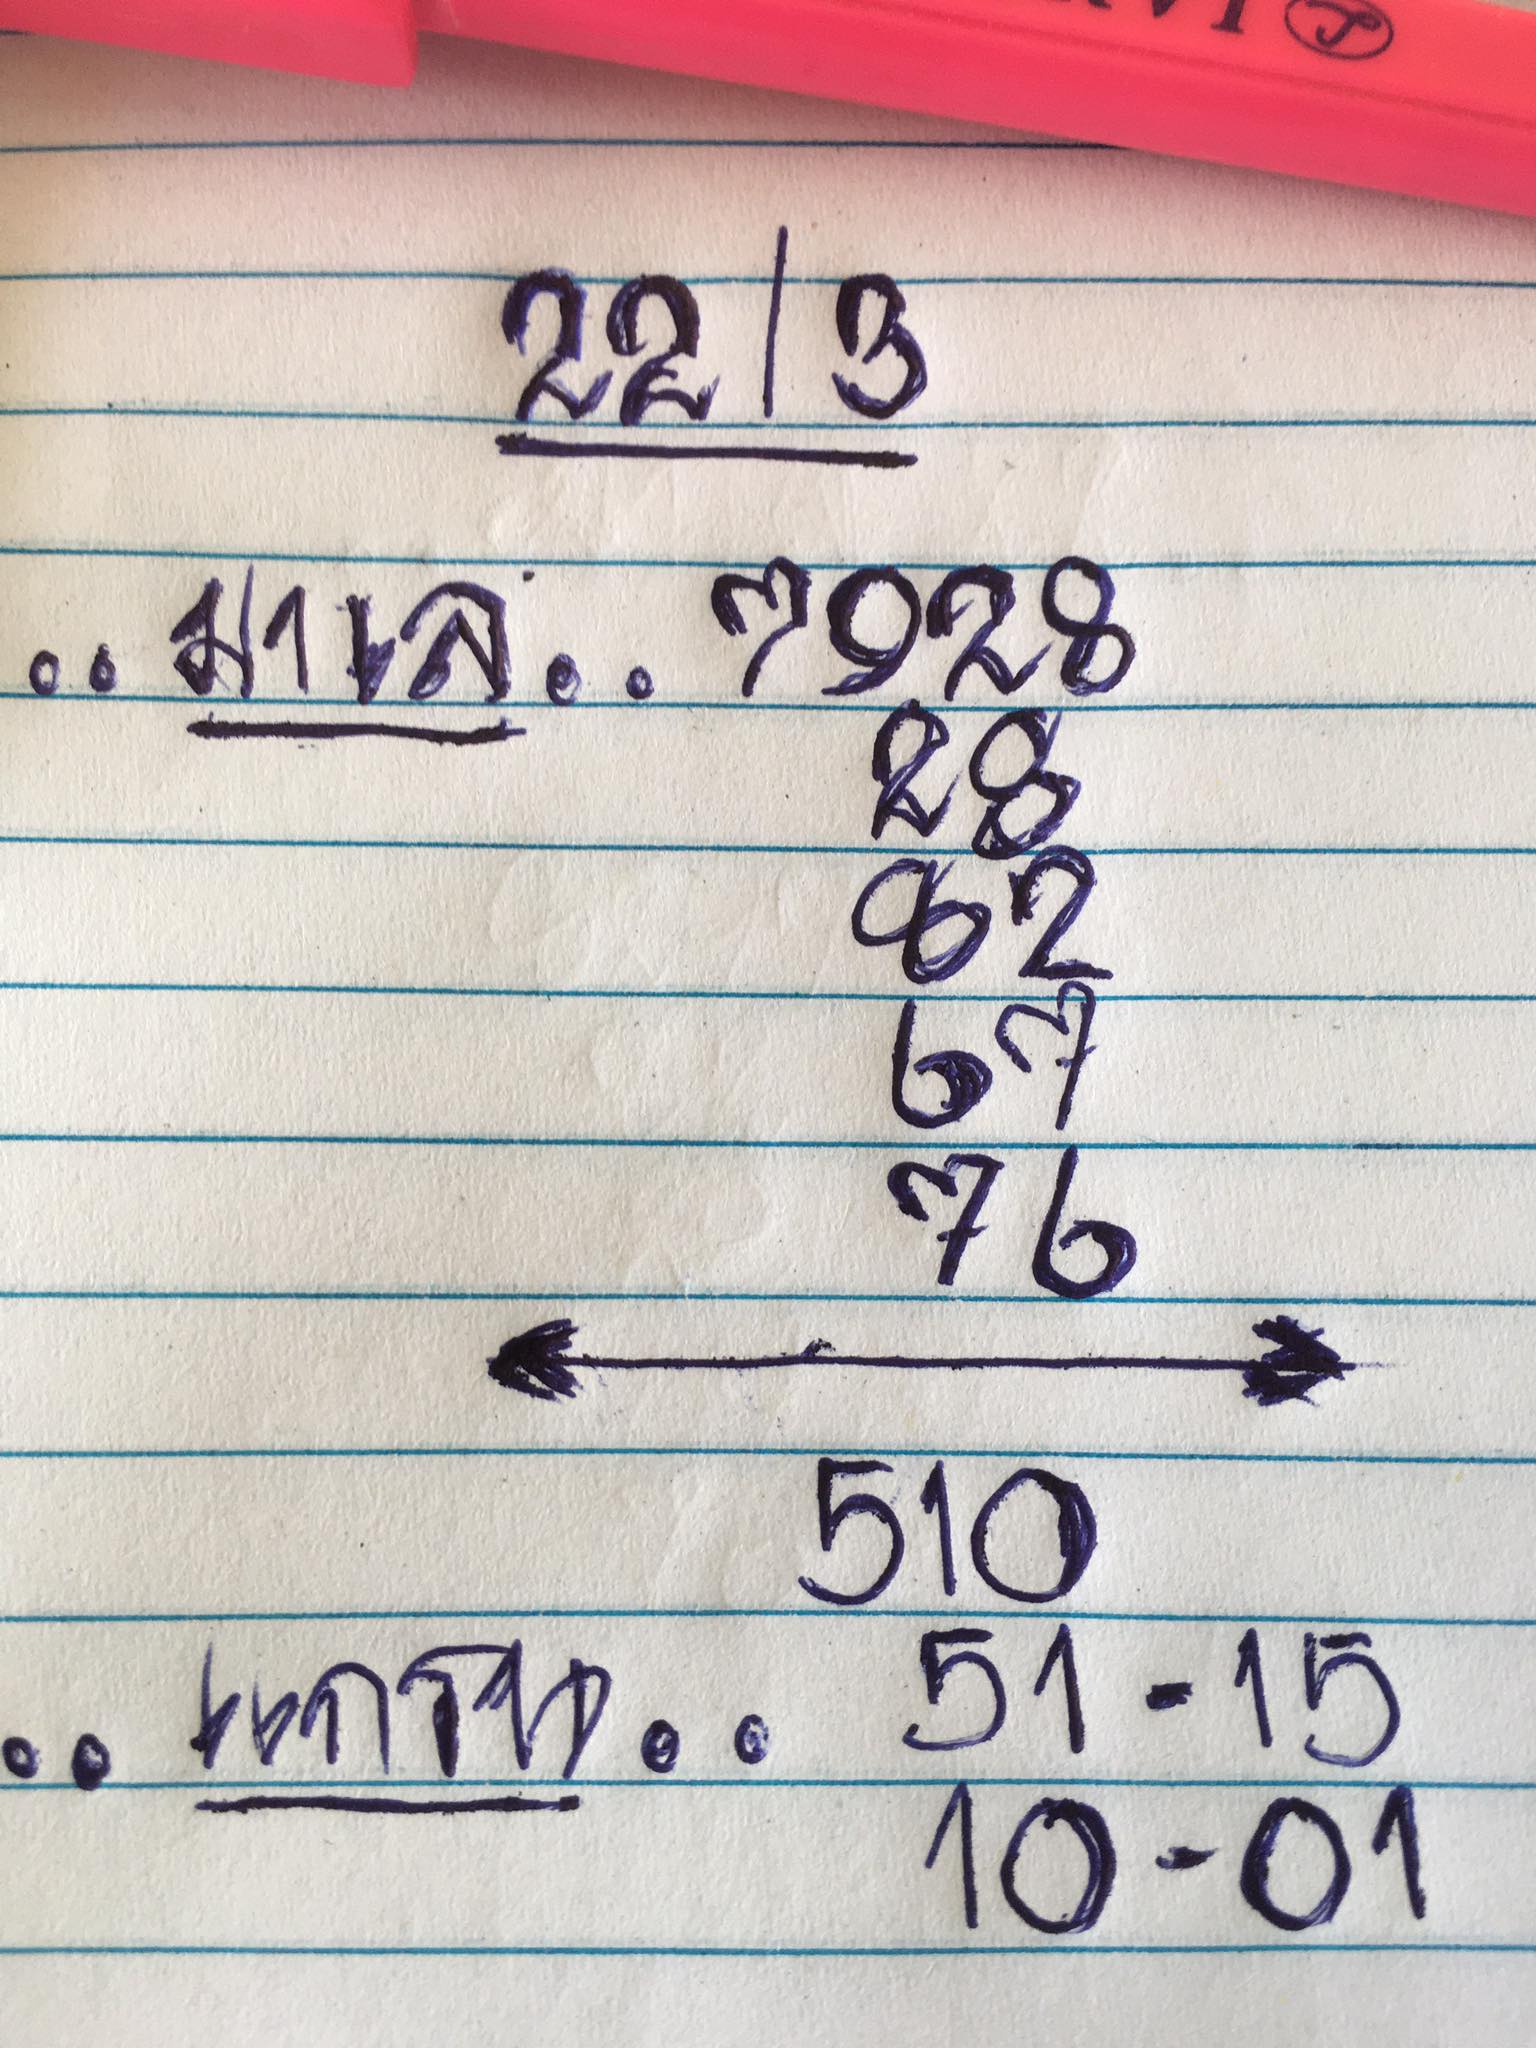 22/3
..มาเล.. 7928
28
82
67
76
510
..แกรน.. 51-15
10-01